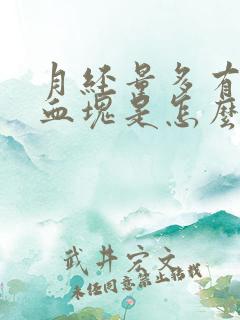 月经量多有
血块是怎么
武井宏文
未经同意禁止转载